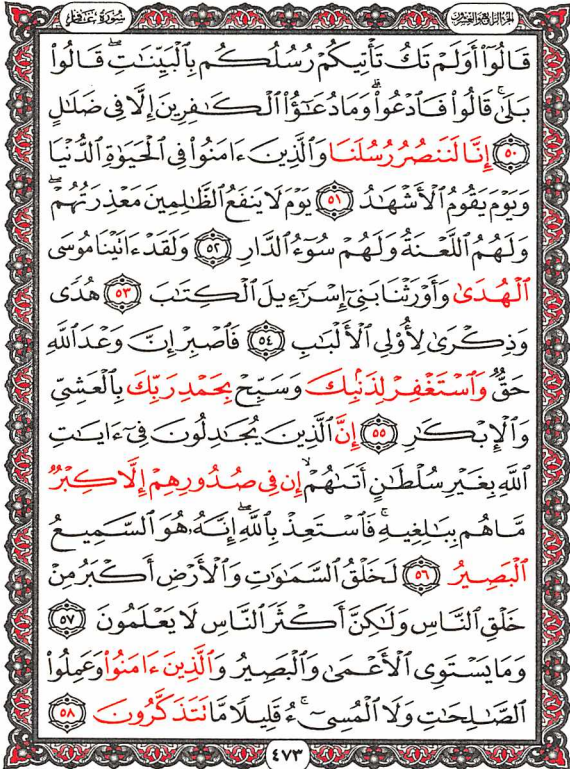 الجزء الرابع والعشرون
سُورَةُ غَافِرٍ
قَالُوٓاْ أَوَلَمْ تَكُ تَأْتِيكُمْ رُسُلُكُم بِٱلْبَيِّنَٰتِۖ قَالُواْ
بَلَىٰۚ قَالُواْ فَٱدْعُواْۗ وَمَا دُعَٰٓؤُاْ ٱلْكَٰفِرِينَ إِلَّا فِى ضَلَٰلٍ
٥٠ إِنَّا لَنَنصُرُ رُسُلَنَا وَٱلَّذِينَ ءَامَنُواْ فِى ٱلْحَيَوٰةِ ٱلدُّنْيَا
وَيَوْمَ يَقُومُ ٱلْأَشْهَٰدُ ٥١ يَوْمَ لَا يَنفَعُ ٱلظَّٰلِمِينَ مَعْذِرَتُهُمْۖ
وَلَهُمُ ٱللَّعْنَةُ وَلَهُمْ سُوٓءُ ٱلدَّارِ ٥٢ وَلَقَدْ ءَاتَيْنَا مُوسَى
ٱلْهُدَىٰ وَأَوْرَثْنَا بَنِىٓ إِسْرَٰٓءِيلَ ٱلْكِتَٰبَ ٥٣ هُدًى
وَذِكْرَىٰ لِأُوْلِى ٱلْأَلْبَٰبِ ٥٤ فَٱصْبِرْ إِنَّ وَعْدَ ٱللَّهِ
حَقٌّ وَٱسْتَغْفِرْ لِذَنۢبِكَ وَسَبِّحْ بِحَمْدِ رَبِّكَ بِٱلْعَشِىِّ
وَٱلْإِبْكَٰرِ ٥٥ إِنَّ ٱلَّذِينَ يُجَٰدِلُونَ فِىٓ ءَايَٰتِ
ٱللَّهِ بِغَيْرِ سُلْطَٰنٍ أَتَىٰهُمْۙ إِن فِى صُدُورِهِمْ إِلَّا كِبْرٌ
مَّا هُم بِبَٰلِغِيهِۚ فَٱسْتَعِذْ بِٱللَّهِۖ إِنَّهُۥ هُوَ ٱلسَّمِيعُ
ٱلْبَصِيرُ ٥٦ لَخَلْقُ ٱلسَّمَٰوَٰتِ وَٱلْأَرْضِ أَكْبَرُ مِنْ
خَلْقِ ٱلنَّاسِ وَلَٰكِنَّ أَكْثَرَ ٱلنَّاسِ لَا يَعْلَمُونَ ٥٧
وَمَا يَسْتَوِى ٱلْأَعْمَىٰ وَٱلْبَصِيرُ وَٱلَّذِينَ ءَامَنُواْ وَعَمِلُواْ
ٱلصَّٰلِحَٰتِ وَلَا ٱلْمُسِىٓءُۚ قَلِيلًا مَّا تَتَذَكَّرُونَ ٥٨
٤٧٣